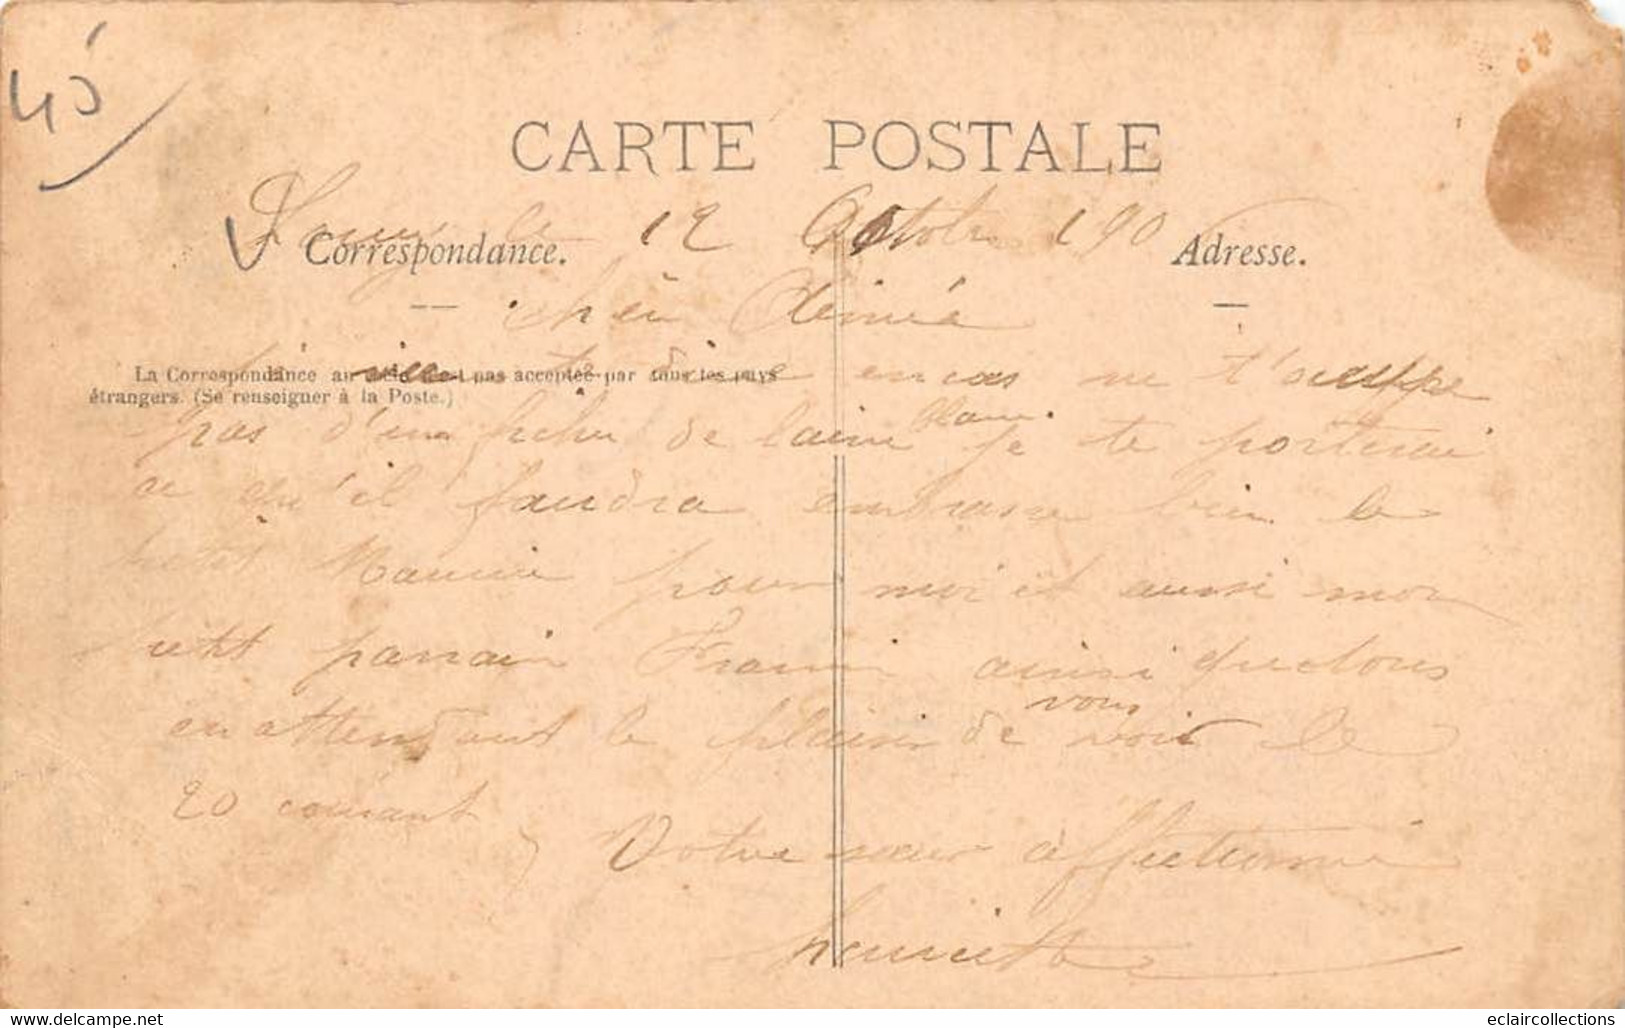 45
CARTE POSTALE
le 12 Octobre 190
Correspondance. Adresse.
Aimée
La Correspondance au pas acceptée par tous les pays
étrangers. (Se renseigner à la Poste.)
en cas ne t'occupe
pas d'un fichu de laine blanc. je te porterai
ce qu'il faudra embrasse bien le
petit Maurice pour moi et aussi mon
petit parrain ainsi que tous
en attendant le plaisir de vous voir le
20 courant
Votre sœur affectionnée
henriette
www.delcampe.net
eclaircollections